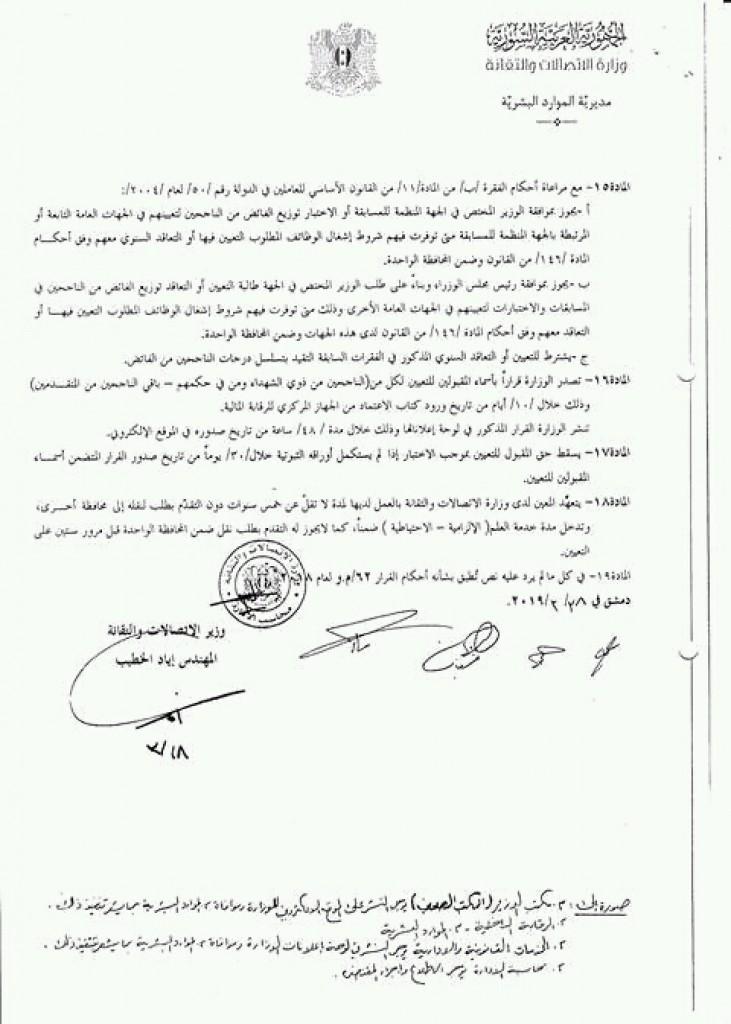 الجمهورية العربية السورية
وزارة الاتصالات والتقانة
مديرية الموارد البشرية
المادة١٥- مع مراعاة أحكام الفقرة /ب/ من المادة/١١/ من القانون الأساسي للعاملين في الدولة رقم /٥٠/ لعام /٢٠٠٤/:
أ -يجوز بموافقة الوزير المختص في الجهة المنظمة للمسابقة أو الاختبار توزيع الفائض من الناجحين لتعيينهم في الجهات العامة التابعة أو
المرتبطة بالجهة المنظمة للمسابقة متى توفرت فيهم شروط إشغال الوظائف المطلوب التعيين فيها أو التعاقد السنوي معهم وفق أحكام
المادة /١٤٦/ من القانون وضمن المحافظة الواحدة.
ب -يجوز بموافقة رئيس مجلس الوزراء وبناءً على طلب الوزير المختص في الجهة طالبة التعيين أو التعاقد توزيع الفائض من الناجحين في
المسابقات والاختبارات لتعيينهم في الجهات العامة الأخرى وذلك متى توفرت فيهم شروط إشغال الوظائف المطلوب التعيين فيها أو
التعاقد معهم وفق أحكام المادة /١٤٦/ من القانون لدى هذه الجهات وضمن المحافظة الواحدة.
ج -يشترط للتعيين أو التعاقد السنوي المذكور في الفقرات السابقة التقيد بتسلسل درجات الناجحين من الفائض.
المادة١٦- تصدر الوزارة قراراً بأسماء المقبولين للتعيين لكل من(الناجحين من ذوي الشهداء ومن في حكمهم – باقي الناجحين من المتقدمين)
وذلك خلال /١٠/ أيام من تاريخ ورود كتاب الاعتماد من الجهاز المركزي للرقابة المالية.
تنشر الوزارة القرار المذكور في لوحة إعلاناتها وذلك خلال مدة /٤٨/ ساعة من تاريخ صدوره في الموقع الالكتروني.
المادة١٧- يسقط حق المقبول للتعيين بموجب الاختبار إذا لم يستكمل أوراقه الثبوتية خلال/٣٠/ يوماً من تاريخ صدور القرار المتضمن أسماء
المقبولين للتعيين.
المادة١٨- يتعهّد المعين لدى وزارة الاتصالات والتقانة بالعمل لديها لمدة لا تقلّ عن خمس سنوات دون التقدّم بطلب لنقله إلى محافظة أخرى،
وتدخل مدة خدمة العلم( الإلزامية – الاحتياطية ) ضمناً، كما لايجوز له التقدم بطلب نقل ضمن المحافظة الواحدة قبل مرور سنتين على
التعيين.
المادة١٩- في كل مالم يرد عليه نص تُطبق بشأنه أحكام القرار ٦٢/م.و لعام
دمشق في ٢٨/ ٢/ ٢٠١٩.
وزير الاتصالات والتقانة
المهندس إياد الخطيب
صورة إلى: م. مكتب الوزير (المكتب الصحفي) يرجى النشر على الموقع الالكتروني للوزارة وموافاة م. الموارد البشرية بما يشعر تنفيذ ذلك.
م. الرقابة الداخلية - م. الموارد البشرية
م. الخدمات القانونية والإدارية يرجى النشر في لوحة إعلانات الوزارة وموافاة م. الموارد البشرية بما يشعر تنفيذ ذلك.
م. محاسبة الإدارة يرجى الاطلاع وإجراء المقتضى.